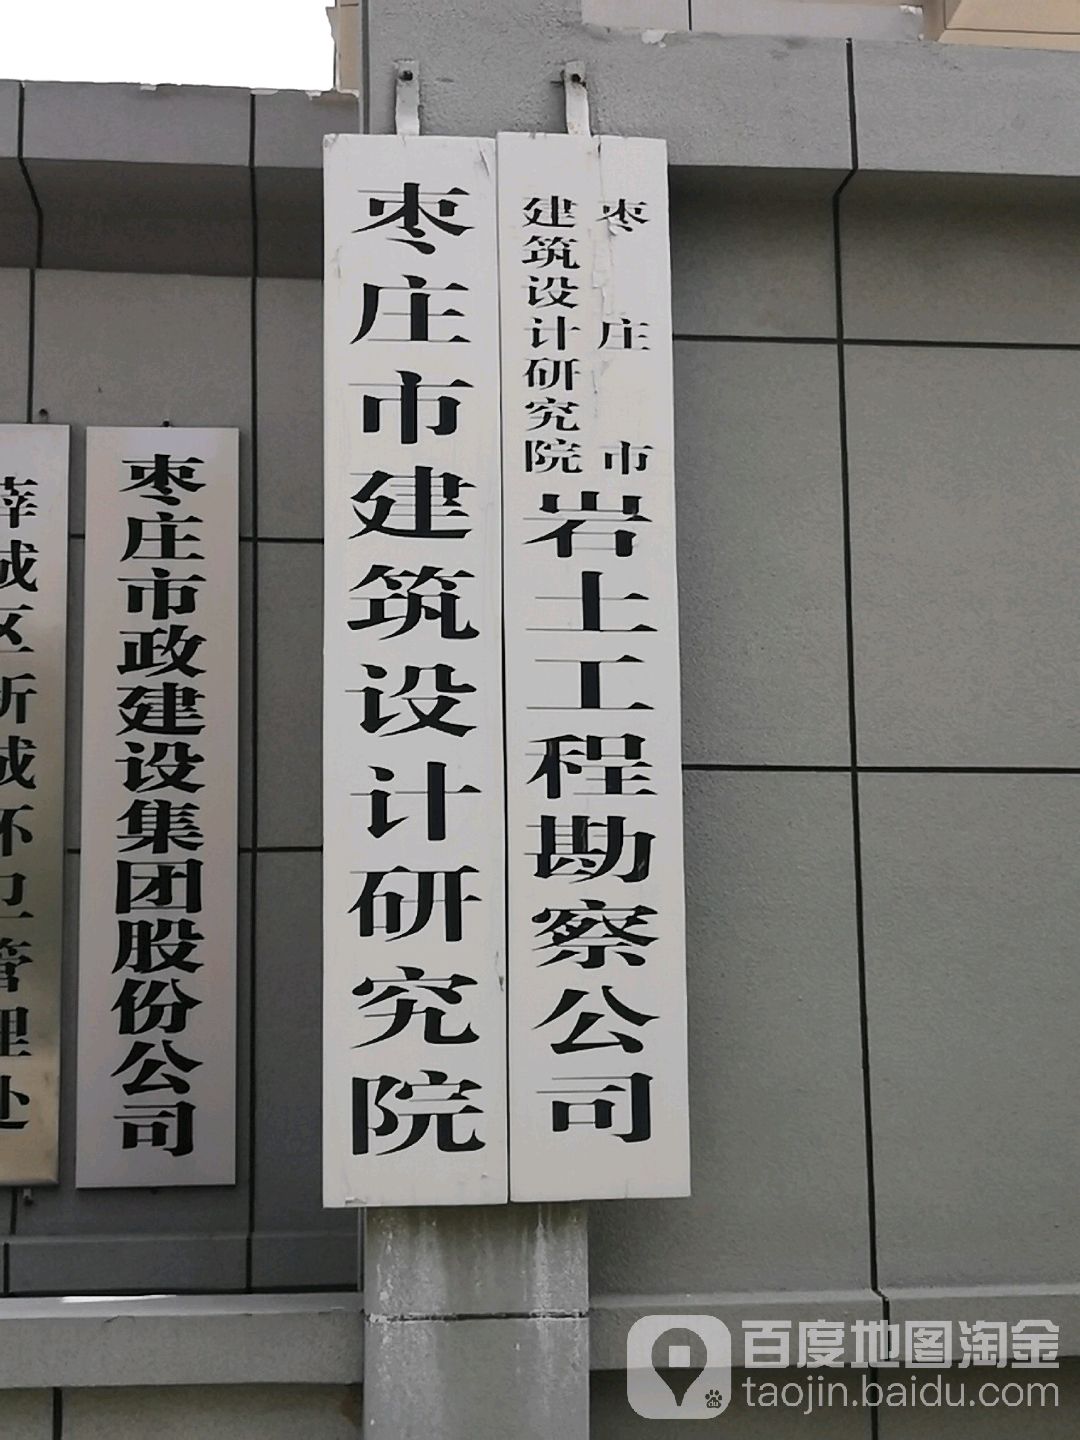 薛城区新城环卫管理处
枣庄市政建设集团股份公司
枣庄市建筑设计研究院
枣庄市
建筑设计研究院
岩土工程勘察公司
百度地图淘金
taojin.baidu.com